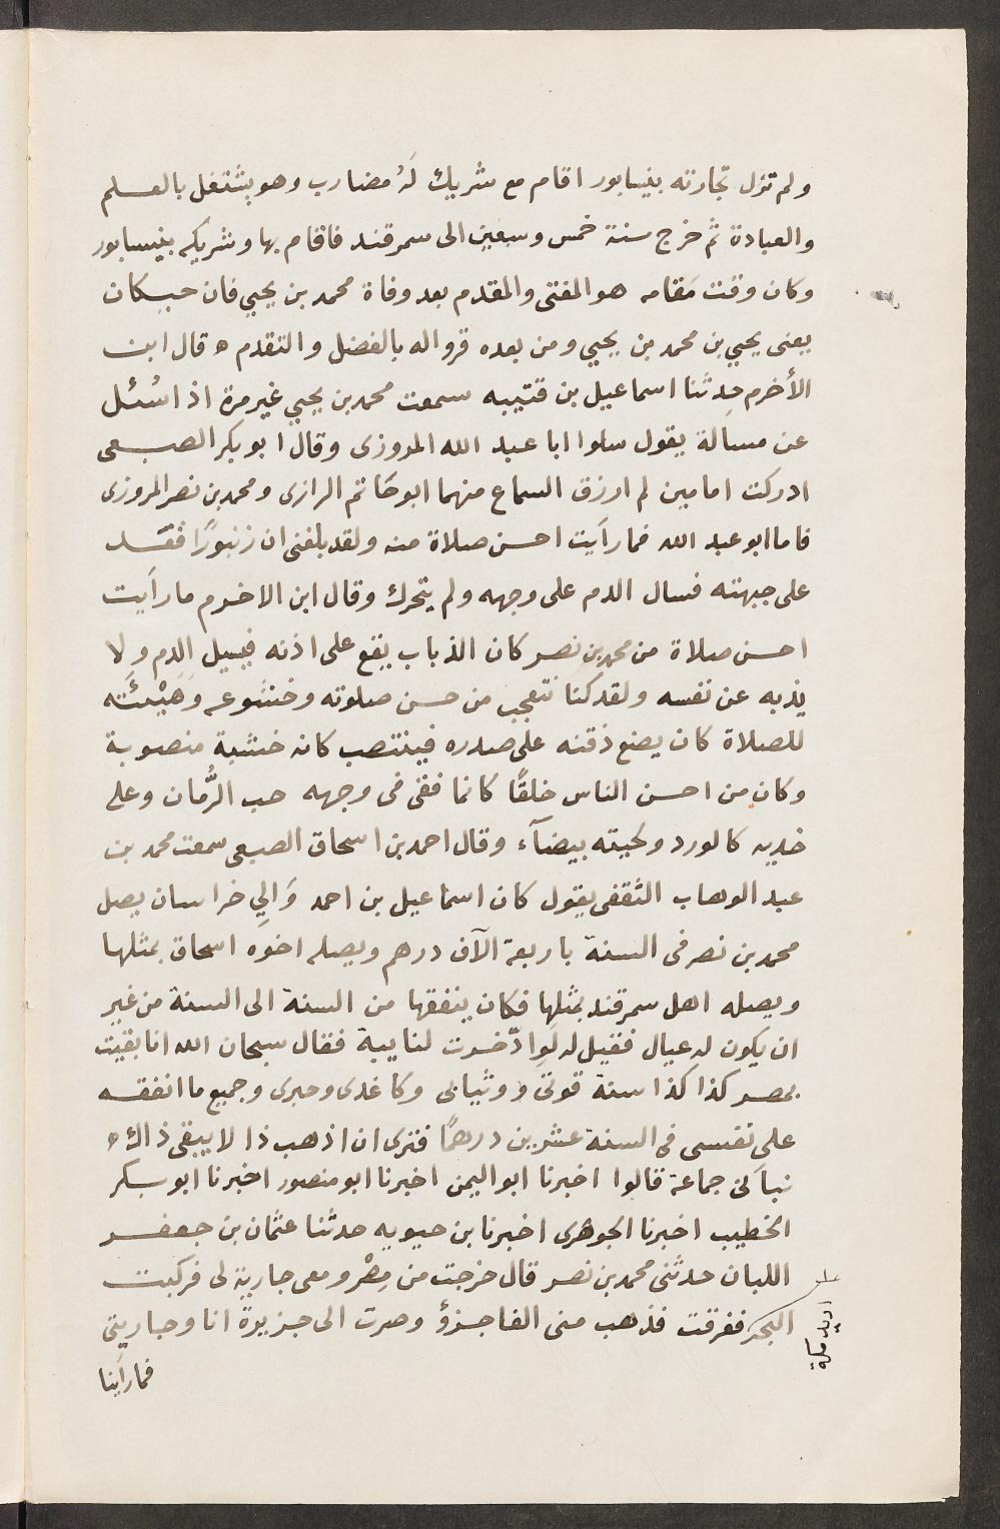 ولم تزل تجارته بنيسابور اقام مع شريك لَهُ مضارب وهو يشتغل بالعلم
والعبادة ثم خرج سنة خمس وسبعين الى سمرقند فاقام بها وشريكه بنيسابور
وكان وقت مَقامه هو المفتى والمقدم بعد وفاة محمد بن يحيي فان حيكان
يعنى يحيي بن محمد بن يحيي ومن بعده قروا له بالفضل والتقدم ه قال ابن
الأخرم حدثنا اسماعيل بن قتيبه سمعت محمد بن يحيي غير مرة اذا سُئل
عن مسالة يقول سلوا ابا عبد الله المروزى وقال ابو بكر الصبعى
ادركت امامين لم ارزق السماع منهما ابو حَاتم الرازى ومحمد بن نصر المروزى
فاما ابو عبد الله فما رأيت احسن صلاة منه ولقد بلغنى ان زنبورًا قعد
على جبهته فسال الدم على وجهه ولم يتحرك وقال ابن الاخرم ما رأيت
احسن صلاة من محمد بن نصر كان الذباب يقع على اذنه فيسيل الدم ولا
يذبه عن نفسه ولقد كنا نتعجب من حسن صلوته وخشوعه وَهَيْئَته
للصلاة كان يضع ذقنه على صدره فينتصب كانه خشبة منصوبة
وكان من احسن الناس خلقًا كانما فقى فى وجهه حب الرُّمان وعلى
خديه كالورد ولحيته بيضآء وقال احمد بن اسحاق الصبعى سمعت محمد بن
عبد الوهاب الثقفى يقول كان اسماعيل بن احمد وَالِي خراسان يصل
محمد بن نصر فى السنة باربعة الآف درهم ويصله اخوه اسحاق بمثلها
ويصله اهل سمرقند بمثلها فكان ينفقها من السنة الى السنة من غير
ان يكون له عيال فقيل له لَوِ ادّخرت لنايبة فقال سبحان الله انا بقيت
بمصر كذا كذا سنة قوتى وثيابى وكاغدى وحبرى وجميع ما انفقه
على نفسى فى السنة عشرين درهمًا فترى ان اذهب ذا لا يبقى ذاك ه
نبأنى جماعة قالوا اخبرنا ابو اليمن اخبرنا ابو منصور اخبرنا ابو بكر
الخطيب اخبرنا الجوهرى اخبرنا بن حيويه حدثنا عثمان بن جعفر
اللبان حدثنى محمد بن نصر قال خرجت من مِصْر ومعى جارية لى فركبت
البحر فغرقت فذهب منى الفا جزؤ وصرت الى جزيرة انا وجاريتى
اريد مكة
فما رأينا